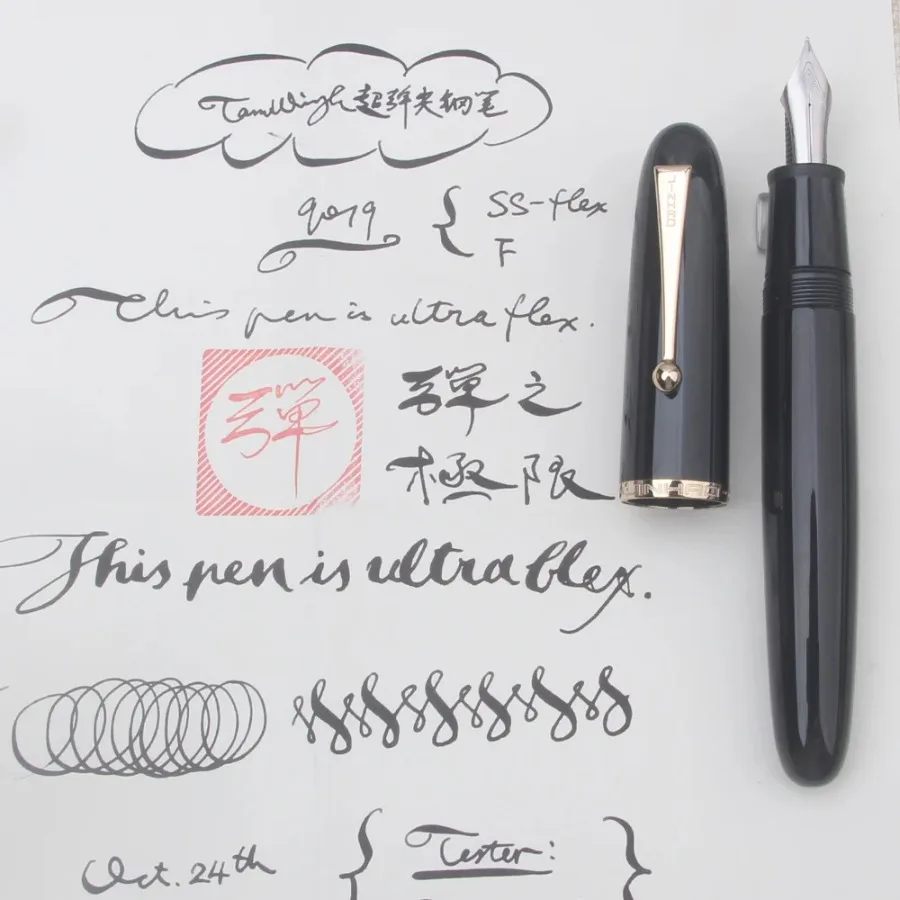 TamWingh超弹尖钢笔
9019 { SS-flex
F
This pen is ultra flex.
彈
彈之
極限
This pen is ultra flex.
Oct. 24th
{ Tester: }
JINHAO
JINHAO